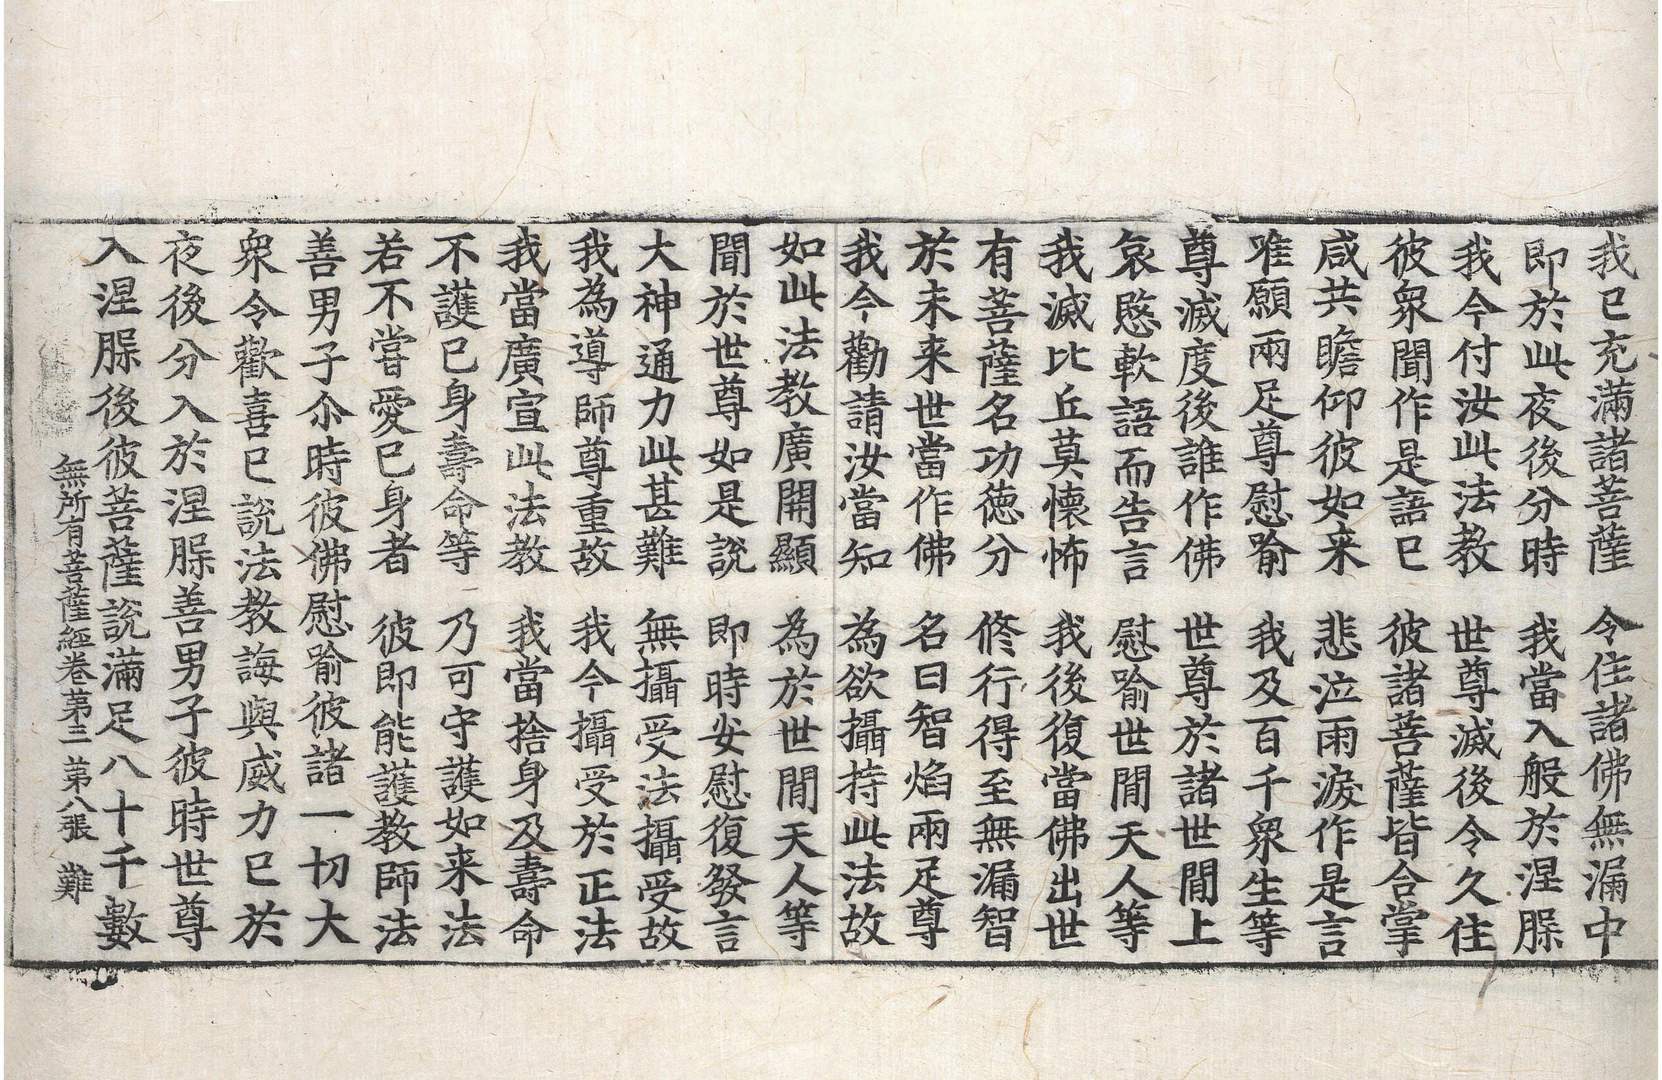 我已充滿諸菩薩 令住諸佛無漏中
即於此夜後分時 我當入般於涅槃
我今付汝此法教 世尊滅後令久住
彼衆聞作是語已 彼諸菩薩皆合掌
咸共瞻仰彼如来 悲泣雨淚作是言
唯願兩足尊慰喻 我及百千衆生等
尊滅度後誰作佛 世尊於諸世間上
哀愍軟語而告言 慰喻世間天人等
我滅比丘莫懷怖 我後復當佛出世
有菩薩名功德分 修行得至無漏智
於未来世當作佛 名曰智焰兩足尊
我今勸請汝當知 為欲攝持此法故
如此法教廣開顯 為於世間天人等
聞於世尊如是說 即時安慰復發言
大神通力此甚難 無攝受法攝受故
我為導師尊重故 我今攝受於正法
我當廣宣此法教 我當捨身及壽命
不護已身壽命等 乃可守護如来法
若不嘗愛已身者 彼即能護教師法
善男子尒時彼佛慰喻彼諸一切大
衆令歡喜已說法教誨與威力已於
夜後分入於涅槃善男子彼時世尊
入涅槃後彼菩薩說滿足八十千數
無所有菩薩經卷第三 第八張 難